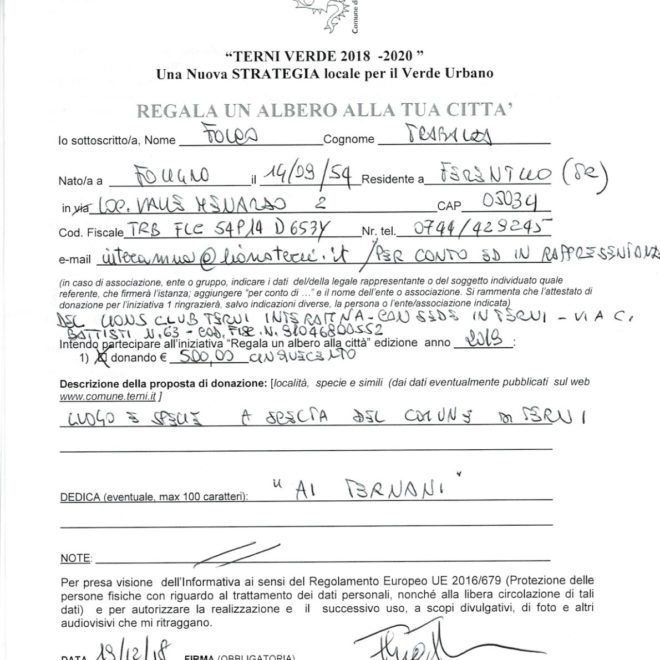 Comune di
“TERNI VERDE 2018 -2020 ”
Una Nuova STRATEGIA locale per il Verde Urbano
REGALA UN ALBERO ALLA TUA CITTA’
Io sottoscritto/a, Nome FOLCO Cognome TRABALZA
Nato/a a FOLIGNO il 14/09/54 Residente a FERENTILLO (TR)
in via LOC. VALLE MENARDO 2 CAP 05034
Cod. Fiscale TRB FLC 54P14 D653Y Nr. tel. 0744/429245
e-mail interamna@lionsterni.it /PER CONTO ED IN RAPPRESENTANZA
(in caso di associazione, ente o gruppo, indicare i dati del/della legale rappresentante o del soggetto individuato quale
referente, che firmerà l’istanza; aggiungere “per conto di …” e il nome dell’ente o associazione. Si rammenta che l’attestato di
donazione per l’iniziativa 1 ringrazierà, salvo indicazioni diverse, la persona o l’ente/associazione indicata)
DEL LIONS CLUB TERNI INTERAMNA - CON SEDE IN TERNI - VIA C.
BATTISTI N. 63 - COD. FISC. N. 91046800552
Intendo partecipare all’iniziativa “Regala un albero alla città” edizione anno 2019:
1) X donando € 500,00 CINQUECENTO
Descrizione della proposta di donazione: [località, specie e simili (dai dati eventualmente pubblicati sul web
www.comune.terni.it ]
LUOGO E SPECIE A SCELTA DEL COMUNE DI TERNI
DEDICA (eventuale, max 100 caratteri): “AI TERNANI”
NOTE:
Per presa visione dell’Informativa ai sensi del Regolamento Europeo UE 2016/679 (Protezione delle
persone fisiche con riguardo al trattamento dei dati personali, nonché alla libera circolazione di tali
dati) e per autorizzare la realizzazione e il successivo uso, a scopi divulgativi, di foto e altri
audiovisivi che mi ritraggano.
DATA 19/12/18 FIRMA (OBBLIGATORIA)